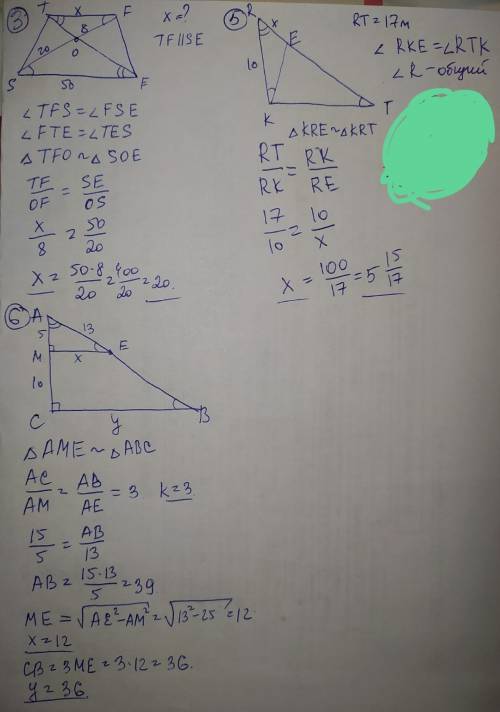 3
T x F
8
20 O
S 50 E
x = ?
TF || SE
∠TFS = ∠FSE
∠FTE = ∠TES
△TFO ~ △SOE
TF/OF = SE/OS
x/8 = 50/20
x = 50·8/20 = 400/20 = 20.
5
R x
E
10
K T
RT = 17м
∠RKE = ∠RTK
∠R - общий
△KRE ~ △KRT
RT/RK = RK/RE
17/10 = 10/x
x = 100/17 = 5 15/17
6
A
5 13
M x E
10
C y B
△AME ~ △ABC
AC/AM = AB/AE = 3 k = 3
15/5 = AB/13
AB = 15·13/5 = 39
ME = √AE² - AM² = √13² - 25 = 12
x = 12
CB = 3ME = 3·12 = 36.
y = 36